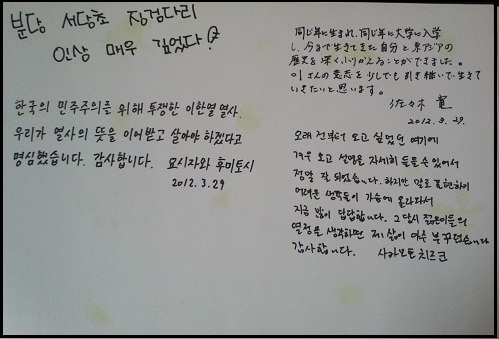 분당 서당초 징검다리
인상 매우 깊었다!
한국의 민주주의를 위해 투쟁한 이한열 열사.
우리가 열사의 뜻을 이어받고 살아야 하겠다고
명심했습니다. 감사합니다. 요시자와 후미토시
2012.3.29
同じ年に生まれ、同じ年に大学に入学
し、今日まで生きてきた自分と東アジアの
歴史を深くふりかえることができました。
李さんの意志を少しでも引き継いで生きて
いきたいと思います。
佐々木 寛
2012.3.29.
오래 전부터 오고 싶었던 여기에
겨우 오고 설명을 자세히 들을 수 있어서
정말 잘 되었습니다. 하지만 말로 표현하기
어려운 생각들이 가슴에 올라와서
지금 많이 답답합니다. 그 당시 젊은이들의
열정을 생각하면 제 삶이 아주 부끄럽습니다
감사합니다. 사카모토 치즈코